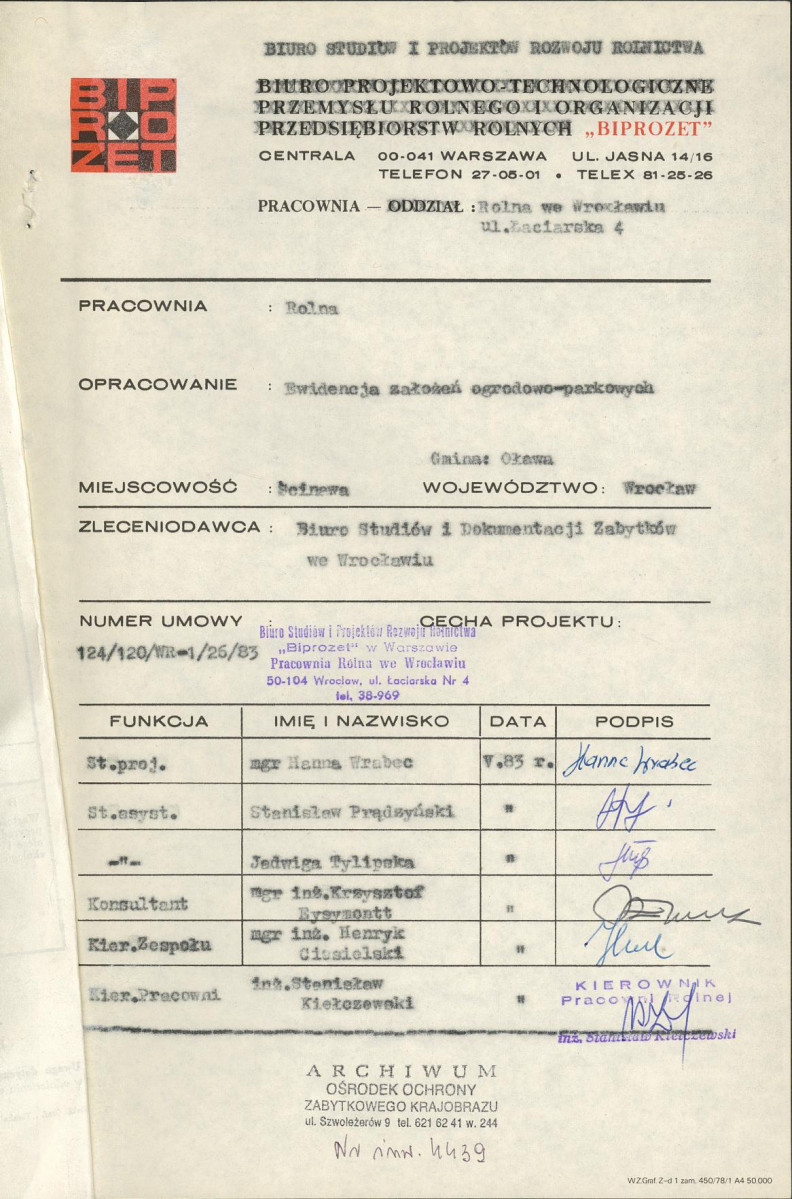 BIURO STUDIÓW I PROJEKTÓW ROZWOJU ROLNICTWA
BIP
ROZ
ZET
BIURO PROJEKTOWO-TECHNOLOGICZNE
PRZEMYSŁU ROLNEGO I ORGANIZACJI
PRZEDSIĘBIORSTW ROLNYCH „BIPROZET”
CENTRALA 00-041 WARSZAWA UL. JASNA 14/16
TELEFON 27-05-01 • TELEX 81-25-26
PRACOWNIA — ODDZIAŁ : Rolna we Wrocławiu
ul.Łaciarska 4
PRACOWNIA : Rolna
OPRACOWANIE : Ewidencja założeń ogrodowo-parkowych
Gmina: Oława
MIEJSCOWOŚĆ : Ścinawa WOJEWÓDZTWO: Wrocław
ZLECENIODAWCA : Biuro Studiów i Dokumentacji Zabytków
we Wrocławiu
NUMER UMOWY : CECHA PROJEKTU:
124/120/WR-1/26/83
Biuro Studiów i Projektów Rozwoju Rolnictwa
„Biprozet" w Warszawie
Pracownia Rolna we Wrocławiu
50-104 Wrocław, ul. Łaciarska Nr 4
tel. 38-969
FUNKCJA IMIĘ I NAZWISKO DATA PODPIS
St.proj. mgr Hanna Wrabec V.83 r. Hanna Wrabec
St.asyst. Stanisław Prądzyński "
-"- Jadwiga Tylipska "
Konsultant mgr inż.Krzysztof
Eysymontt "
Kier.Zespołu mgr inż. Henryk
Ciesielski "
Kier.Pracowni inż.Stanisław
Kiełczewski "
KIEROWNIK
Pracowni Rolnej
inż. Stanisław Kiełczewski
ARCHIWUM
OŚRODEK OCHRONY
ZABYTKOWEGO KRAJOBRAZU
ul. Szwoleżerów 9 tel. 621 62 41 w. 244
Nr inw. 4439
W.Z.Graf. Z-d 1 zam. 450/78/1 A4 50.000